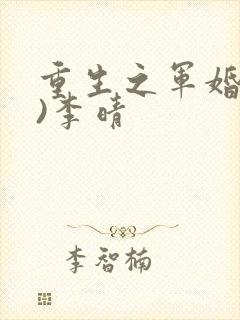 重生之军婚
)李晴
李智楠